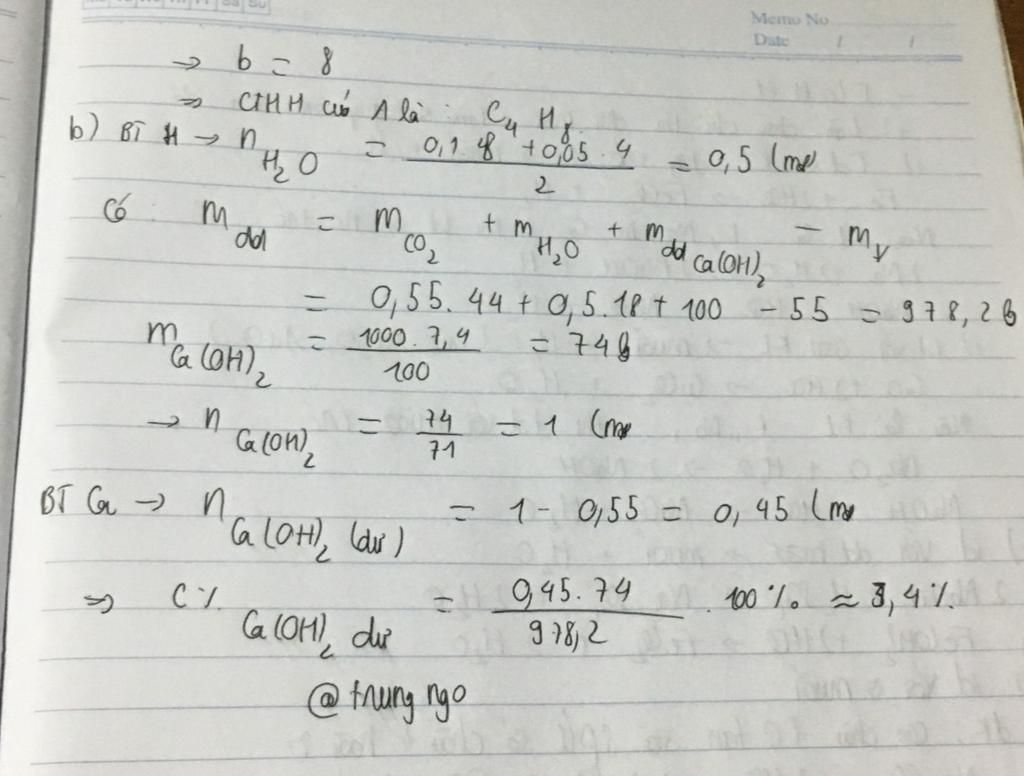 Memo No
Date / /
→ b = 8
⇒ CTHH của A là: C₄H₈
b) BT H → n H₂O = (0,1.8 + 0,05.4)/2 = 0,5 (mol
Có: m dd = m CO₂ + m H₂O + m dd Ca(OH)₂ - m↓
= 0,55.44 + 0,5.18 + 100 - 55 = 978,2 g
m Ca(OH)₂ = (1000.7,4)/100 = 74 g
→ n Ca(OH)₂ = 74/71 = 1 (mol
BT Ca → n Ca(OH)₂ (dư) = 1 - 0,55 = 0,45 (mol
⇒ C% Ca(OH)₂ dư = (0,45.74)/978,2 . 100% ≈ 3,4%.
@trung ngo